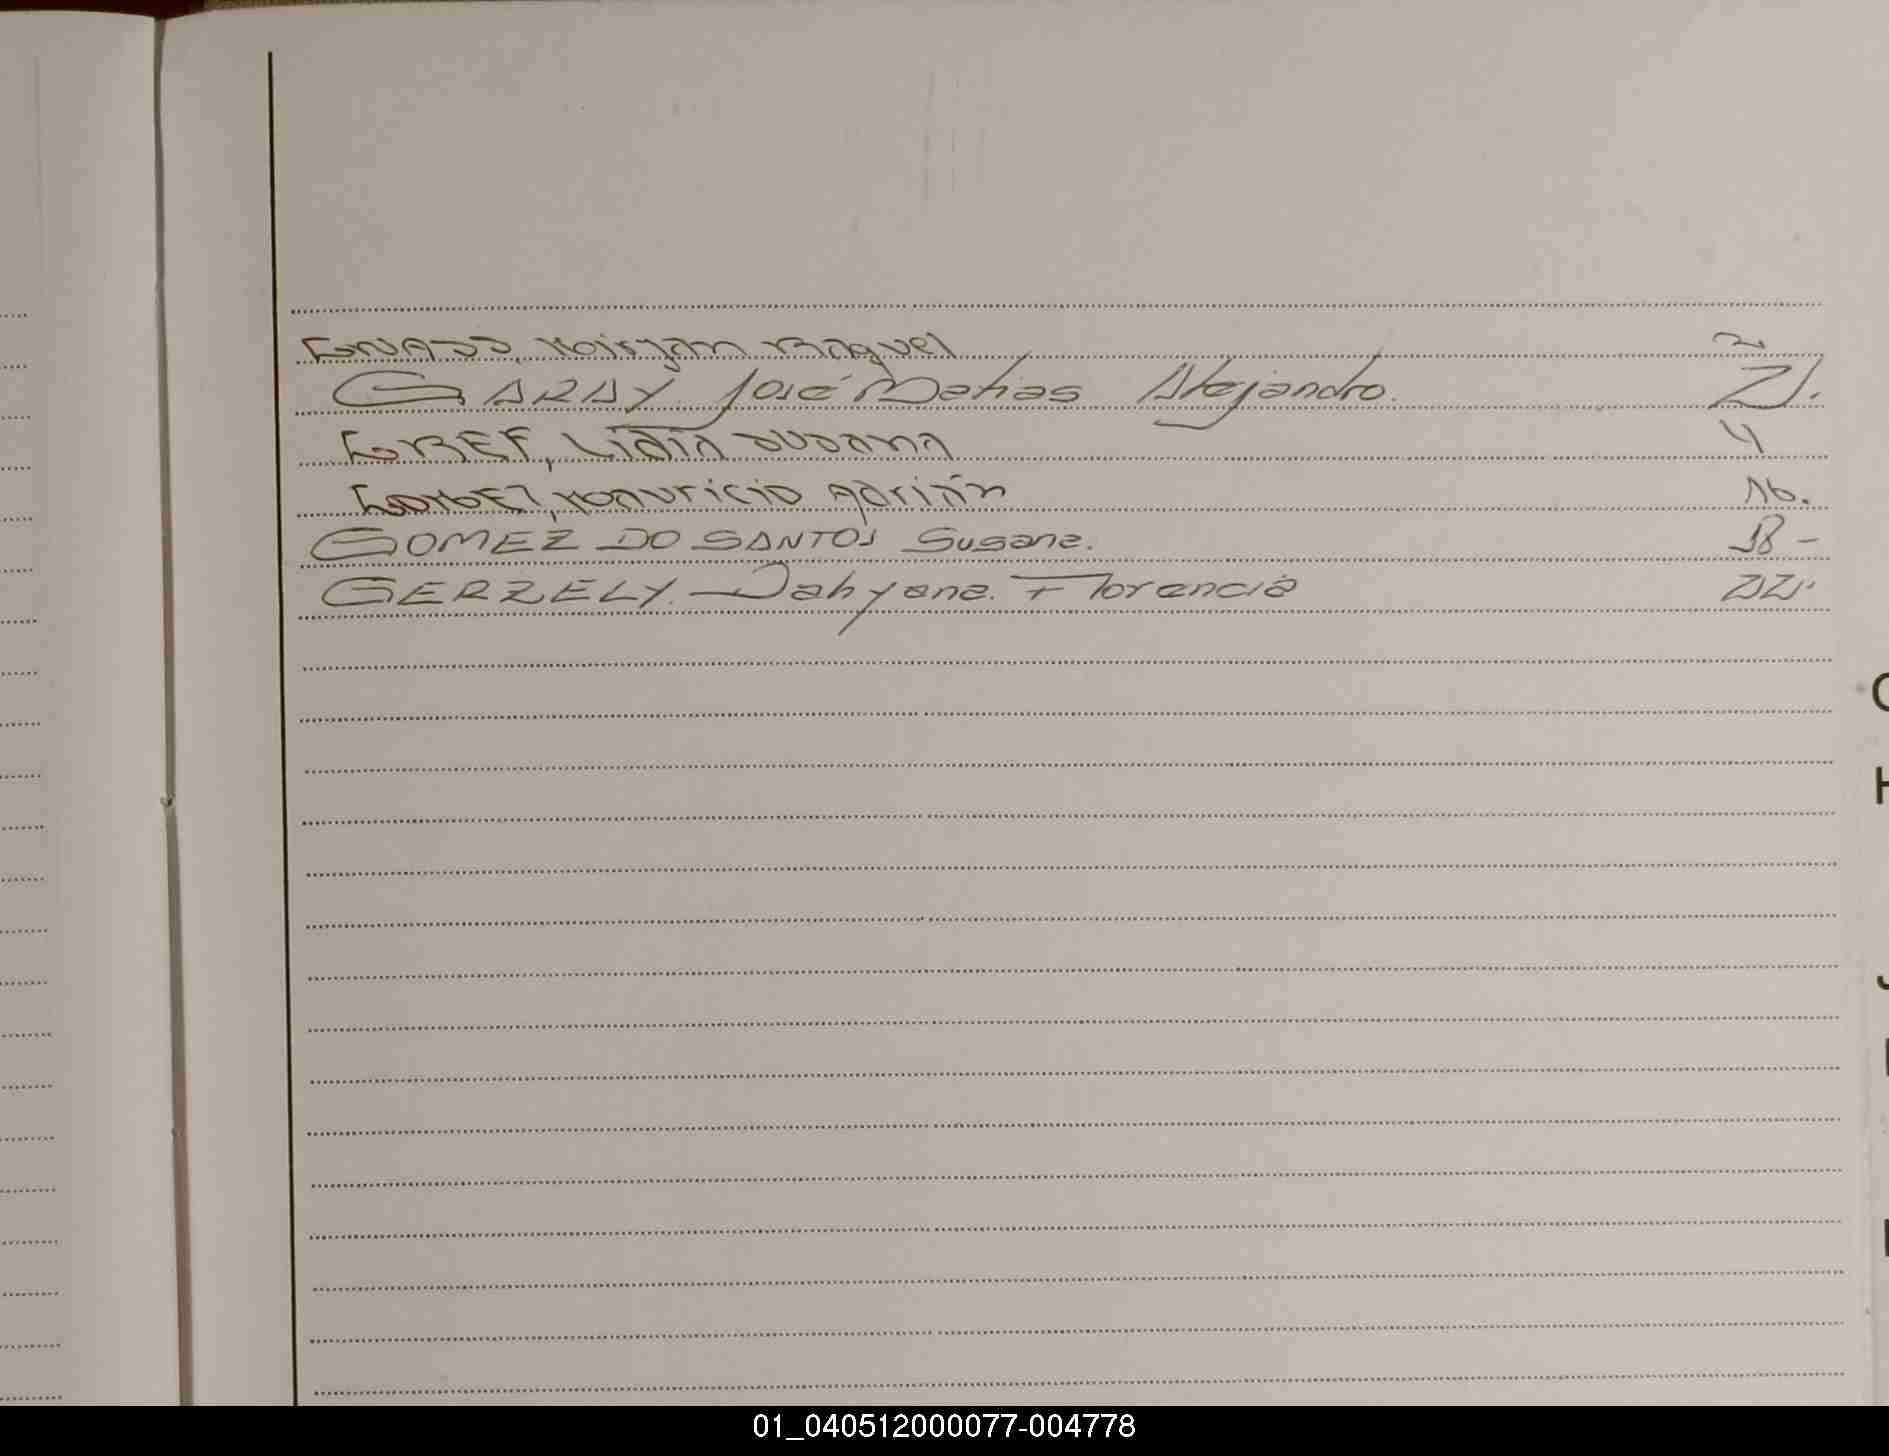 Miryam Raquel 2
GARAY José Matias Alejandro. 21.
GREF, Lidia Susana 4
GOMEZ, Mauricio Adrián 16.
GOMEZ DO SANTOS Susana. 18-
GERZELY. Dahyana. Florencia 22.
01_040512000077-004778